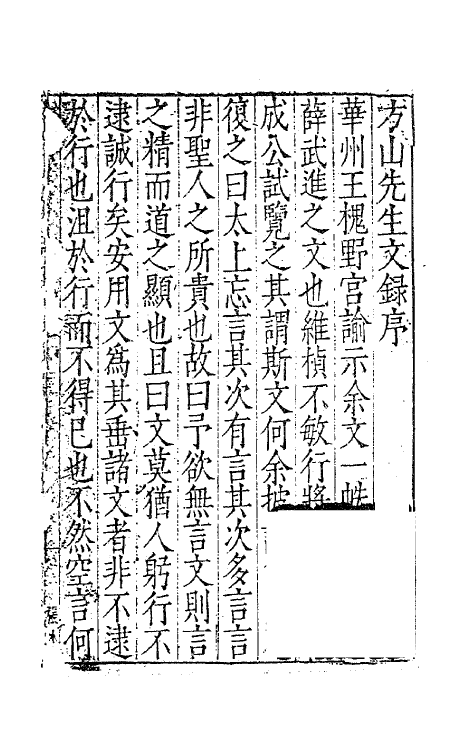 方山先生文録序
華州王槐野宫諭示余文一帙
薛武進之文也維楨不敏行將
成公試覽之其謂斯文何余披
復之曰太上忘言其次有言其次多言言
非聖人之所貴也故曰予欲無言文則言
之精而道之顯也且曰文莫猶人躬行不
逮誠行矣安用文爲其垂諸文者非不逮
於行也沮於行而不得已也不然空言何